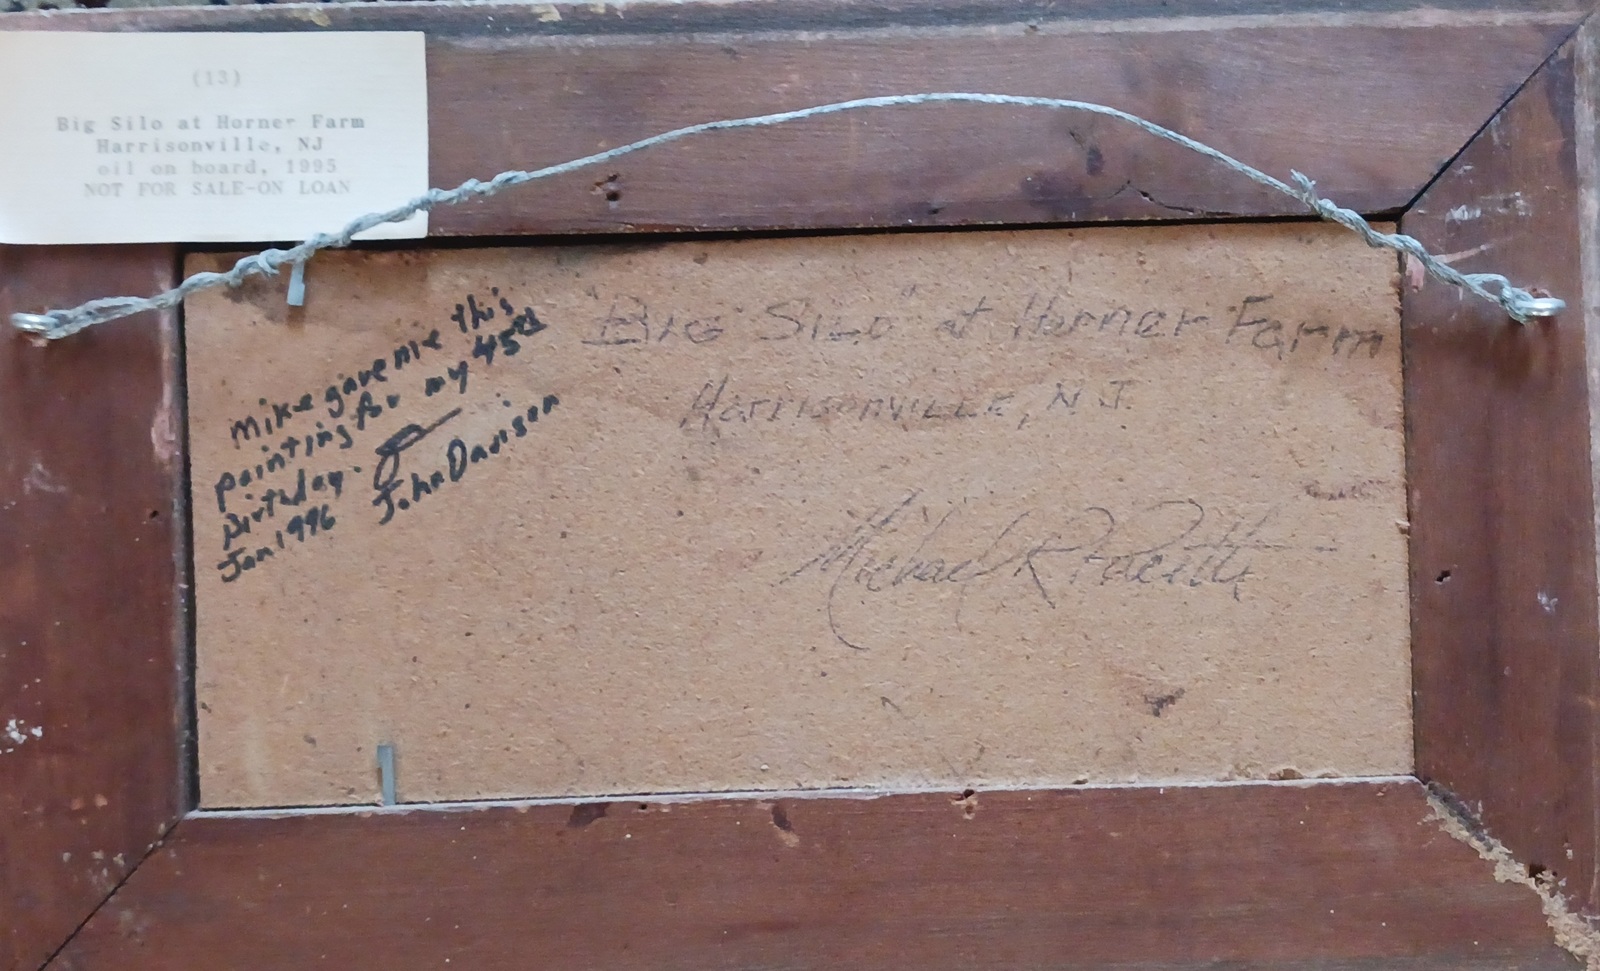 (13)
Big Silo at Horner Farm
Harrisonville, NJ
oil on board, 1995
NOT FOR SALE-ON LOAN
"Big Silo" at Horner Farm
Harrisonville, N.J.
Mike gave me this
painting for my 45th
Birthday.
Jan 1996 John Davison
Michael R